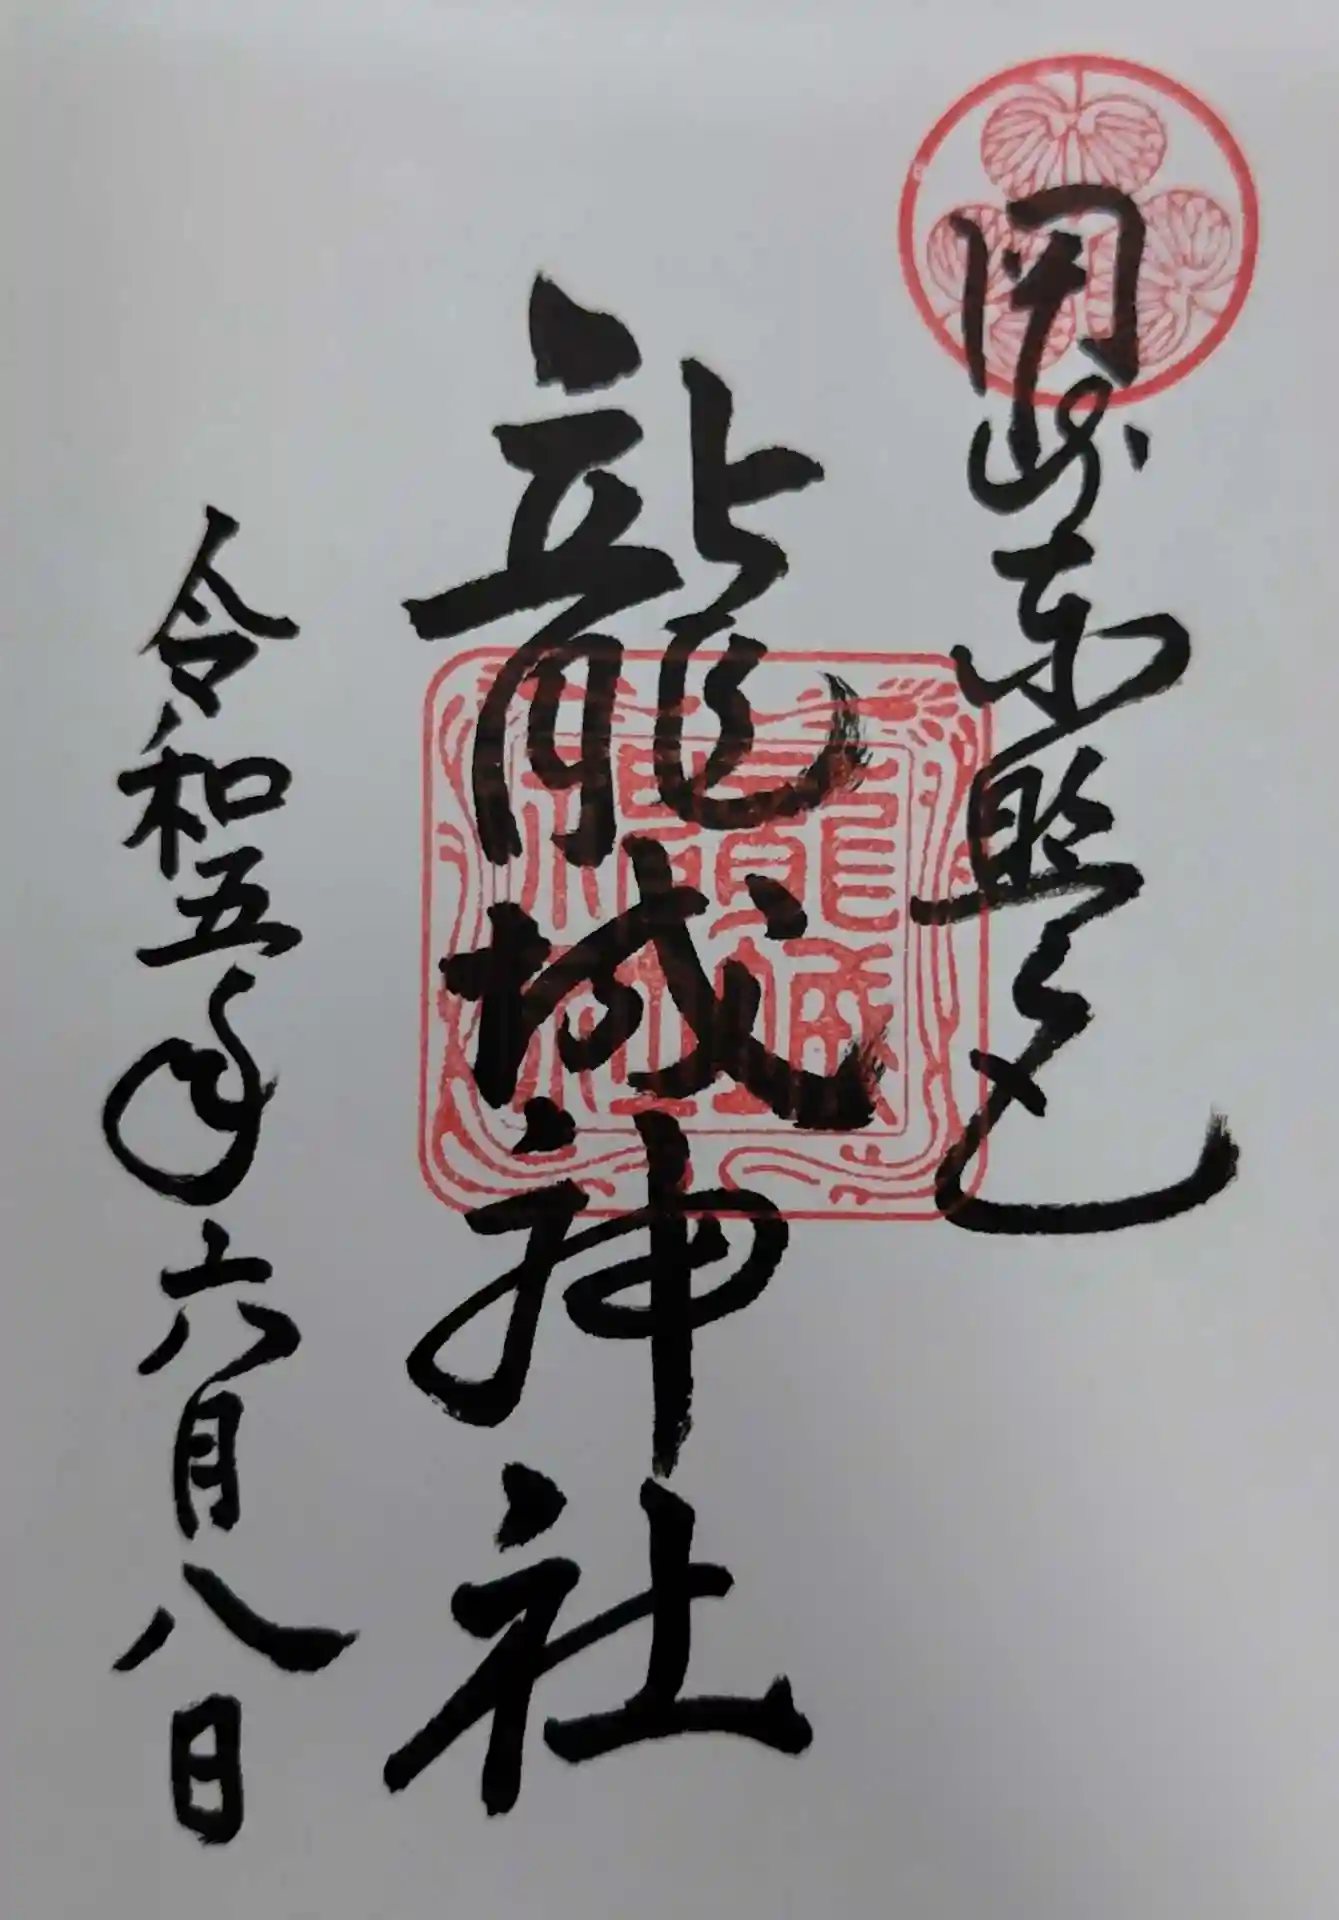 岡崎東照宮
龍城神社
龍城神社
令和五年六月八日